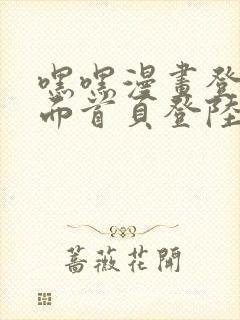 嘿嘿漫畫登
而首頁登陸
薔薇花開